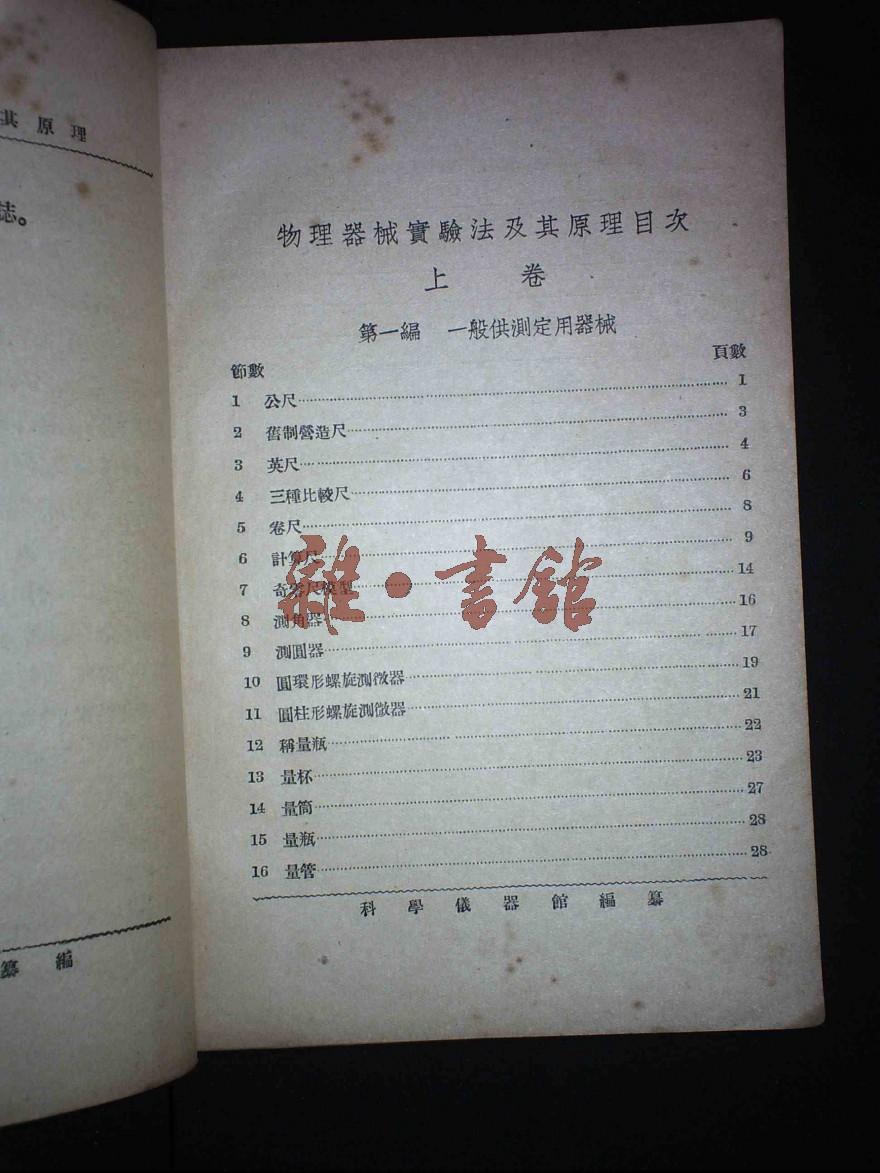 其原理
誌。
纂編
物理器械實驗法及其原理目次
上 卷
第一編 一般供測定用器械
節數 頁數
1 公尺 1
2 舊制營造尺 3
3 英尺 4
4 三種比較尺 6
5 卷尺 8
6 計算尺 9
7 奇零尺模型 14
8 測角器 16
9 測圓器 17
10 圓環形螺旋測微器 19
11 圓柱形螺旋測微器 21
12 稱量瓶 22
13 量杯 23
14 量筒 27
15 量瓶 28
16 量管 28
科學儀器館編纂
雜·書館